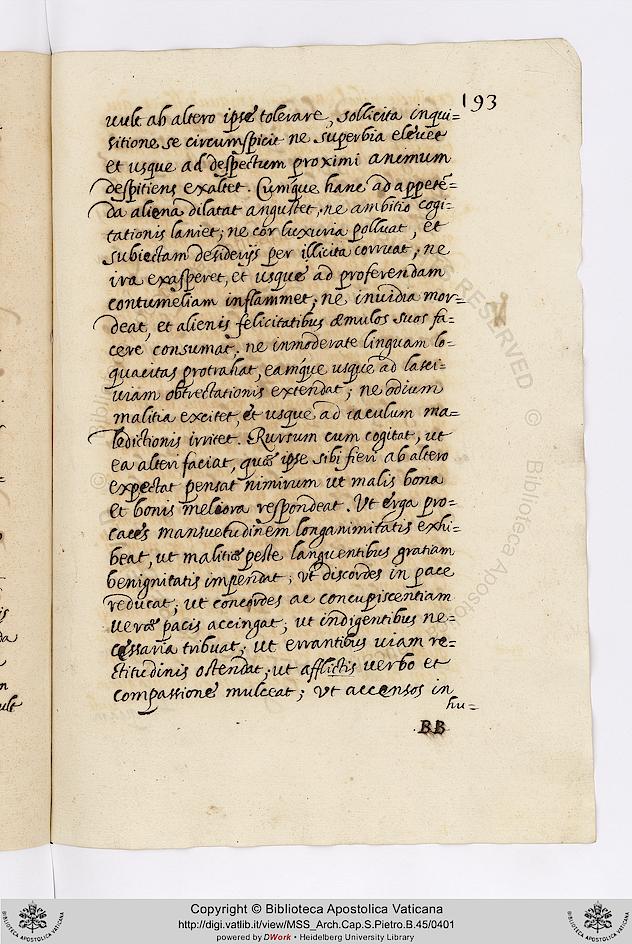 193
uult ab altero ipse tolerare, sollicita inqui=
sitione se circumspicit ne superbia eleuet
et usque ad despectum proximi animum
despitiens exaltet. Cumque hanc ad appetē=
da aliena dilatat angustet, ne ambitio cogi=
tationis laniet; ne cor luxuria polluat, et
subiectam desiderijs per illicita corruat; ne
ira exasperet, et usque ad proferendam
contumeliam inflammet; ne inuidia mor=
deat, et alienis felicitatibus æmulos suos fa=
cere consumat, ne inmoderate linguam lo=
quacitas protrahat, eamque usque ad lasci=
uiam obtrectationis extendat; ne odium
malitia excitet, et usque ad iaculum ma=
ledictionis irritet. Rursum cum cogitat, ut
ea alteri faciat, quæ ipse sibi fieri ab altero
expectat pensat nimirum ut malis bona
et bonis meliora respondeat. Ut erga pro=
caces mansuetudinem longanimitatis exhi=
beat, ut malitiæ peste languentibus gratiam
benignitatis impendat; ut discordes in pace
reducat; ut concordes ac concupiscentiam
ueræ pacis accingat; ut indigentibus ne=
cessaria tribuat; ut errantibus uiam re=
ctitudinis ostendat; ut afflictis uerbo et
compassione mulceat; ut accensos in
hu=
BB
ult
Copyright © Biblioteca Apostolica Vaticana
http://digi.vatlib.it/view/MSS_Arch.Cap.S.Pietro.B.45/0401
powered by DWork • Heidelberg University Library